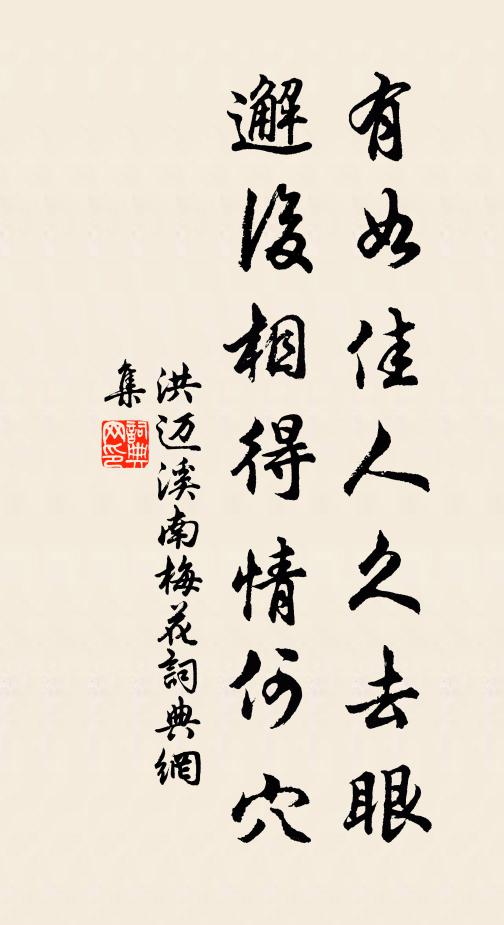 有如佳人久去眼
邂逅相得情何穴
洪迈溪南梅花詞典網
集
詞典網印